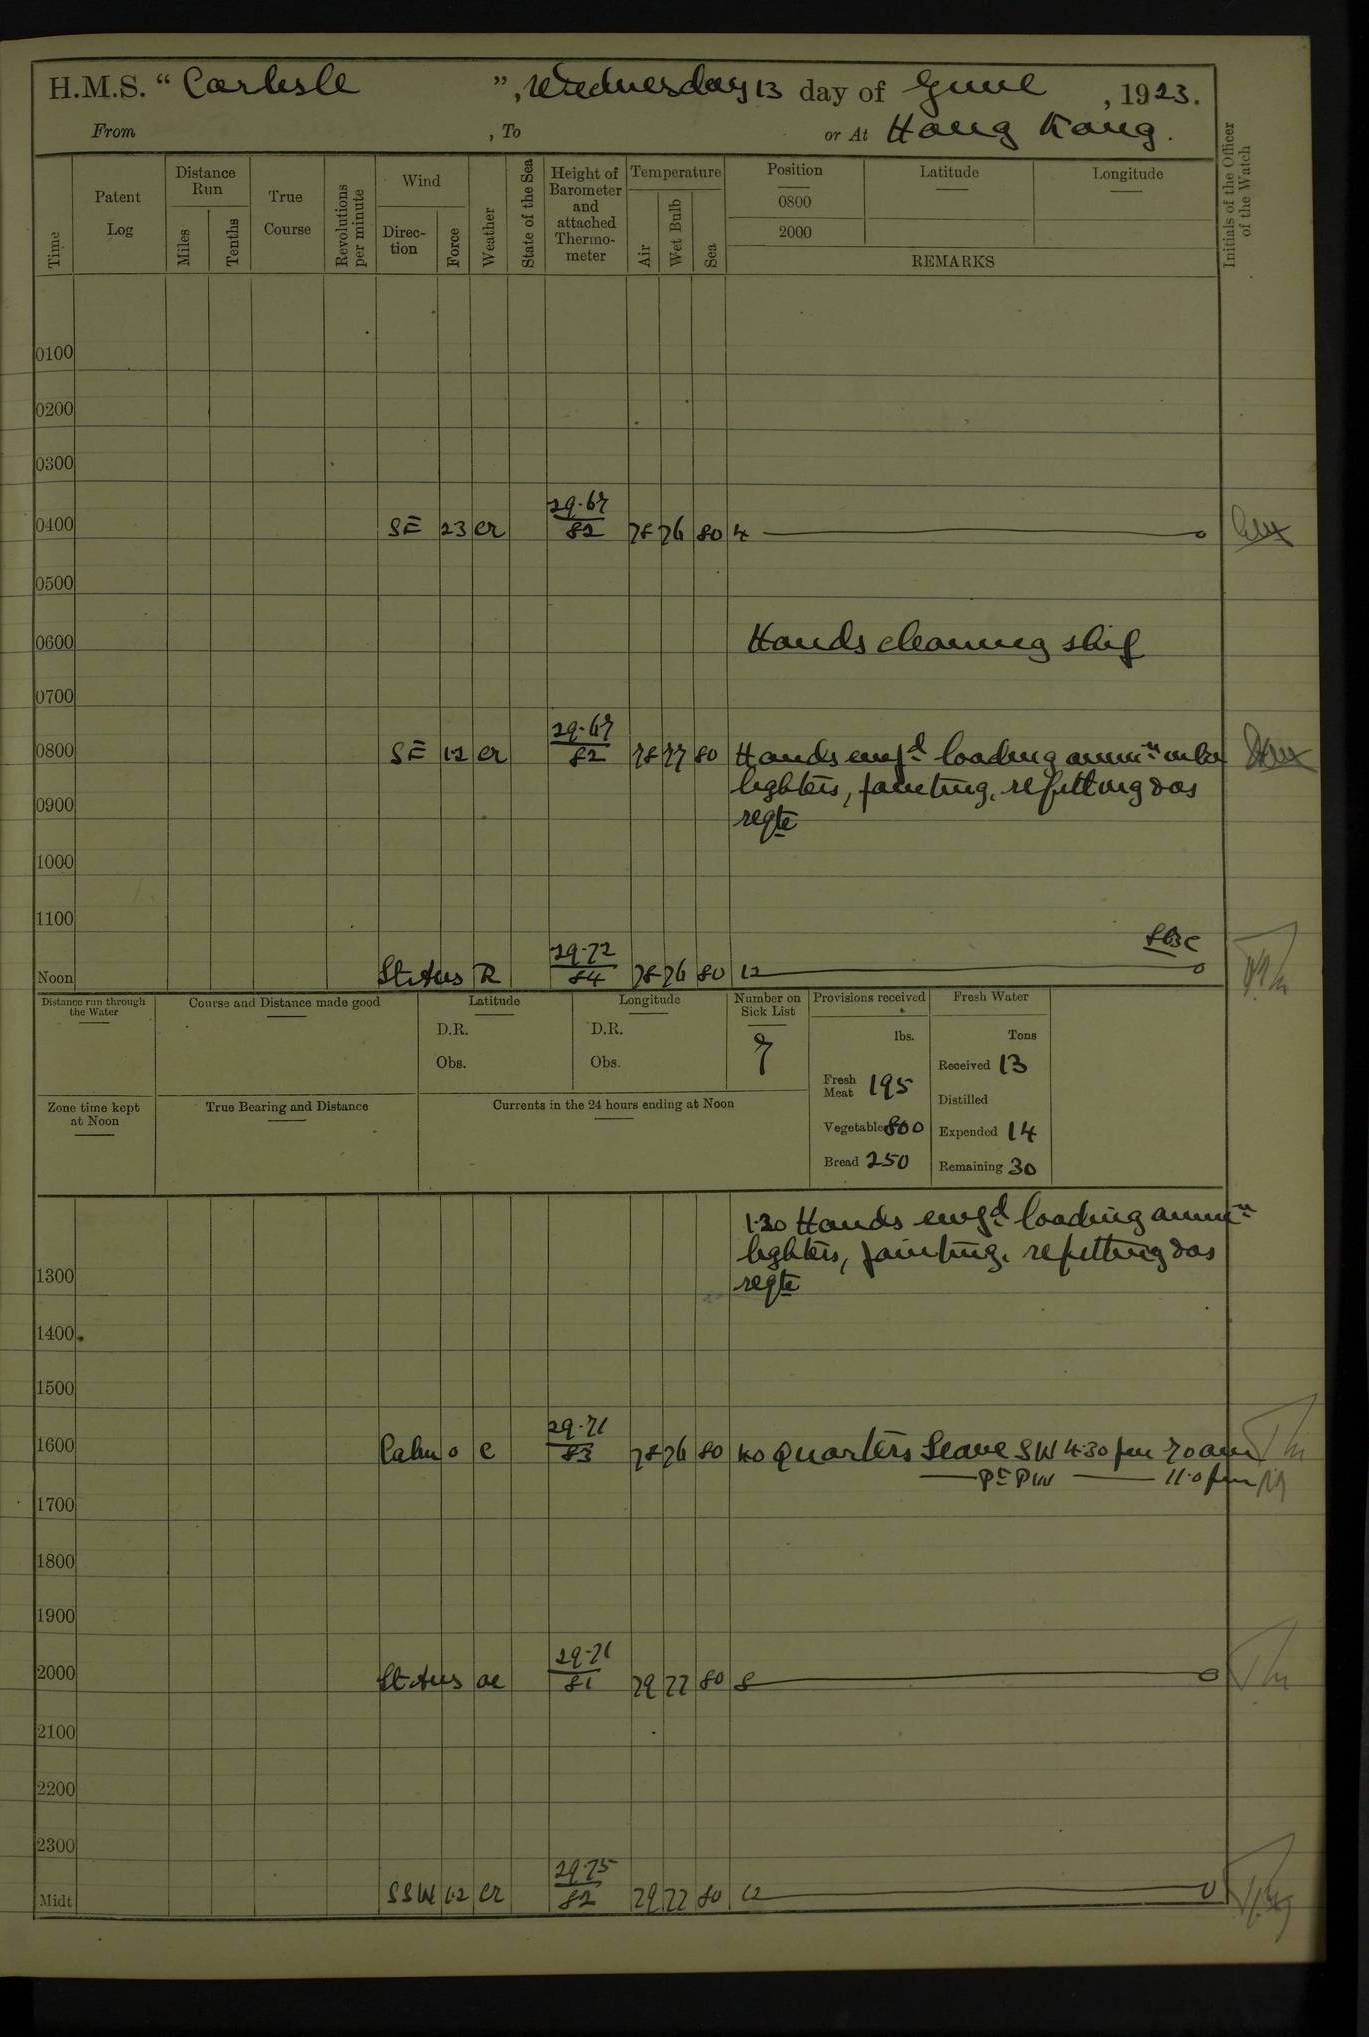 H.M.S. “ Carlisle ”, Wednesday 13 day of June , 1923.
From , To or At Hong Kong.
Time
Patent Log
Distance Run
Miles
Tenths
True Course
Revolutions per minute
Wind
Direc-tion
Force
Weather
State of the Sea
Height of Barometer and attached Thermo-meter
Temperature
Air
Wet Bulb
Sea
Position
0800
2000
Latitude
Longitude
REMARKS
Initials of the Officer of the Watch
0100
0200
0300
0400 SE 23 cr 29.67 / 82 78 76 80 4
0500
0600 Hands cleaning ship
0700
0800 SE 1.2 cr 29.67 / 82 78 77 80 Hands empd loading ammn
lighters, painting, refitting & as
0900 reqte
1000
1100
Noon Lt Airs R 29.72 / 84 78 76 80 12
Distance run through the Water
Course and Distance made good
Latitude
D.R.
Obs.
Longitude
D.R.
Obs.
Number on Sick List
7
Provisions received
lbs.
Fresh Meat 195
Vegetables 800
Bread 250
Fresh Water
Tons
Received 13
Distilled
Expended 14
Remaining 30
Zone time kept at Noon
True Bearing and Distance
Currents in the 24 hours ending at Noon
1.30 Hands empd loading ammn
lighters, painting, refitting & as
1300 reqte
1400
1500
1600 Calm 0 c 29.71 / 83 78 76 80 4.0 Quarters Leave SW 4.30 pm 7.0 am
PE PW 11.0 pm
1700
1800
1900
2000 Lt Airs oc 29.71 / 81 79 77 80 8
2100
2200
2300
Midt SSW 1.2 cr 29.75 / 82 79 77 80 12